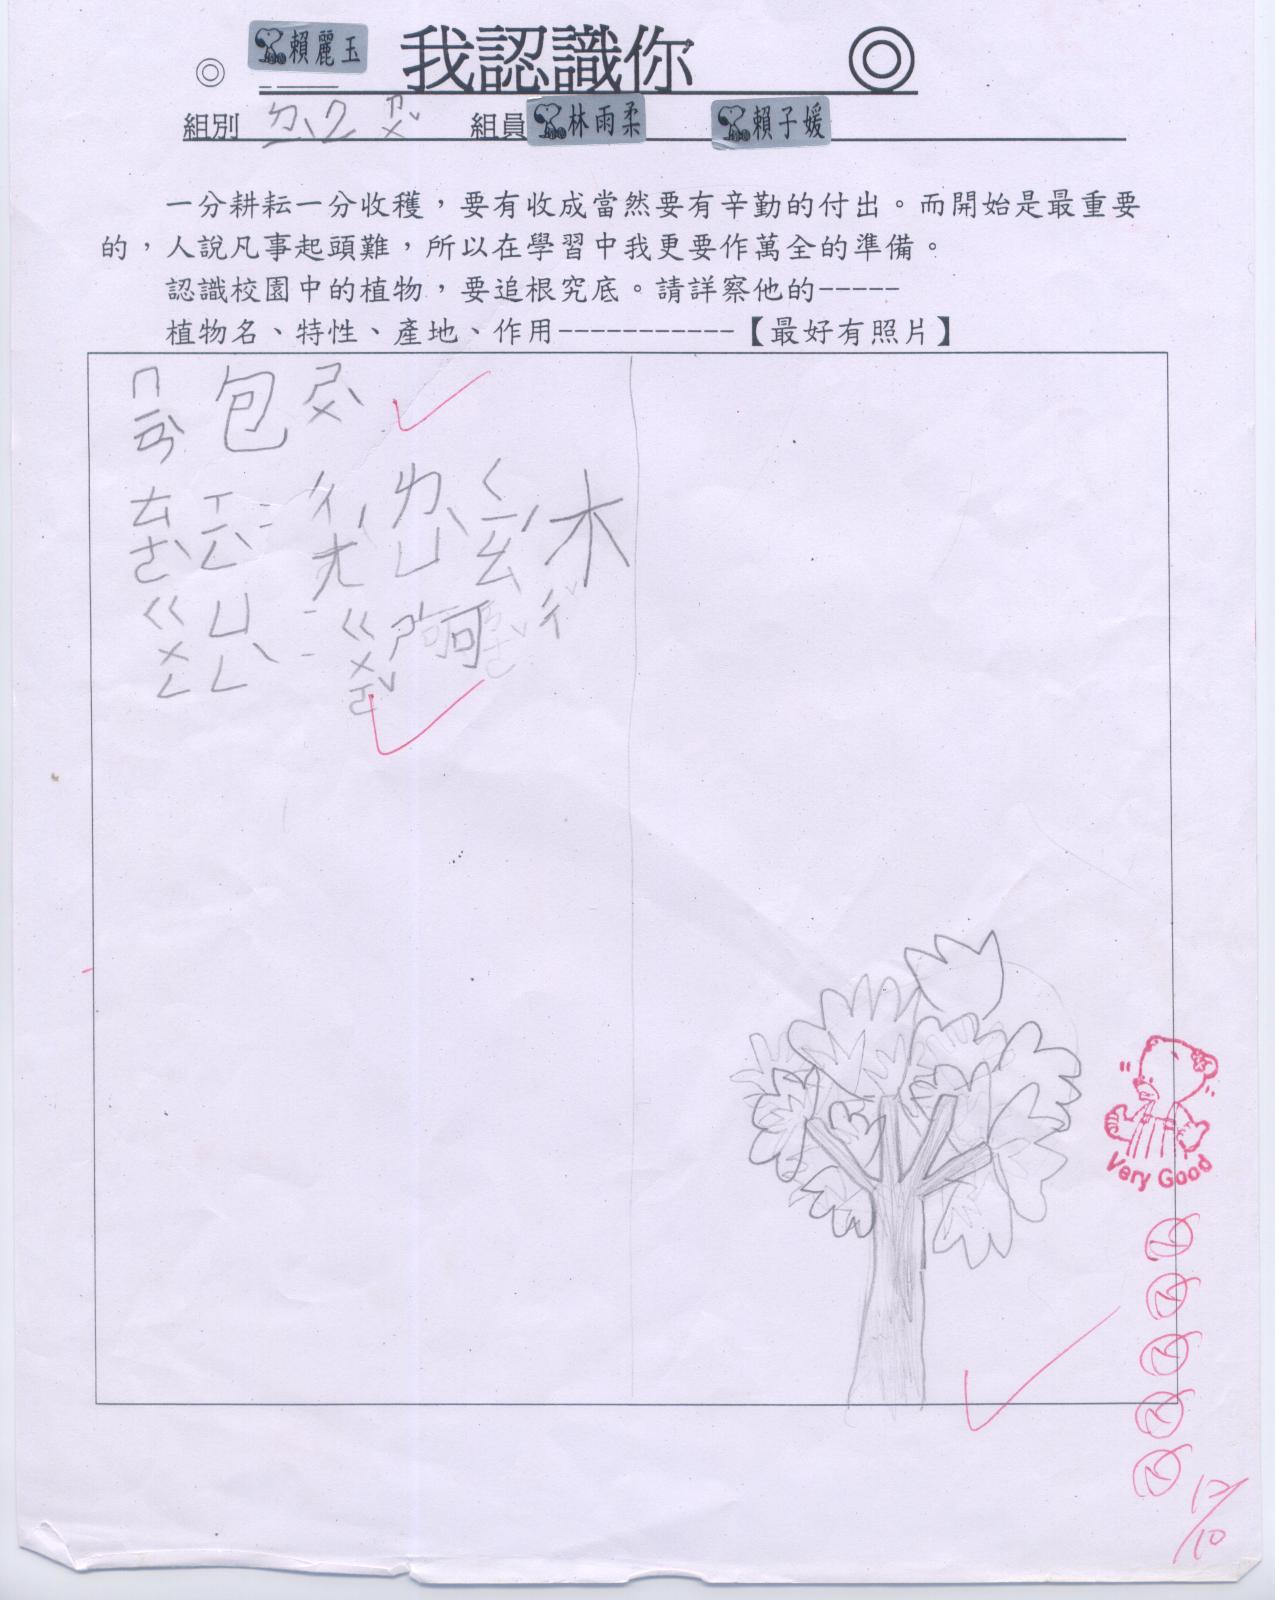 ◎ 賴麗玉 我認識你 ◎
組別 ㄉㄧˋ2ㄗㄨˇ 組員 林雨柔 賴子媛
一分耕耘一分收穫，要有收成當然要有辛勤的付出。而開始是最重要
的，人說凡事起頭難，所以在學習中我更要作萬全的準備。
認識校園中的植物，要追根究底。請詳察他的-----
植物名、特性、產地、作用-----------【最好有照片】
ㄇㄧㄢˋ包ㄕㄨˋ
ㄊㄜˋㄒㄧㄥˋ：ㄔㄤˊㄌㄩˋㄑㄧㄠˊ木
ㄍㄨㄥㄩㄥˋ：ㄍㄨㄛˇ可ㄔ
Very Good
12/10